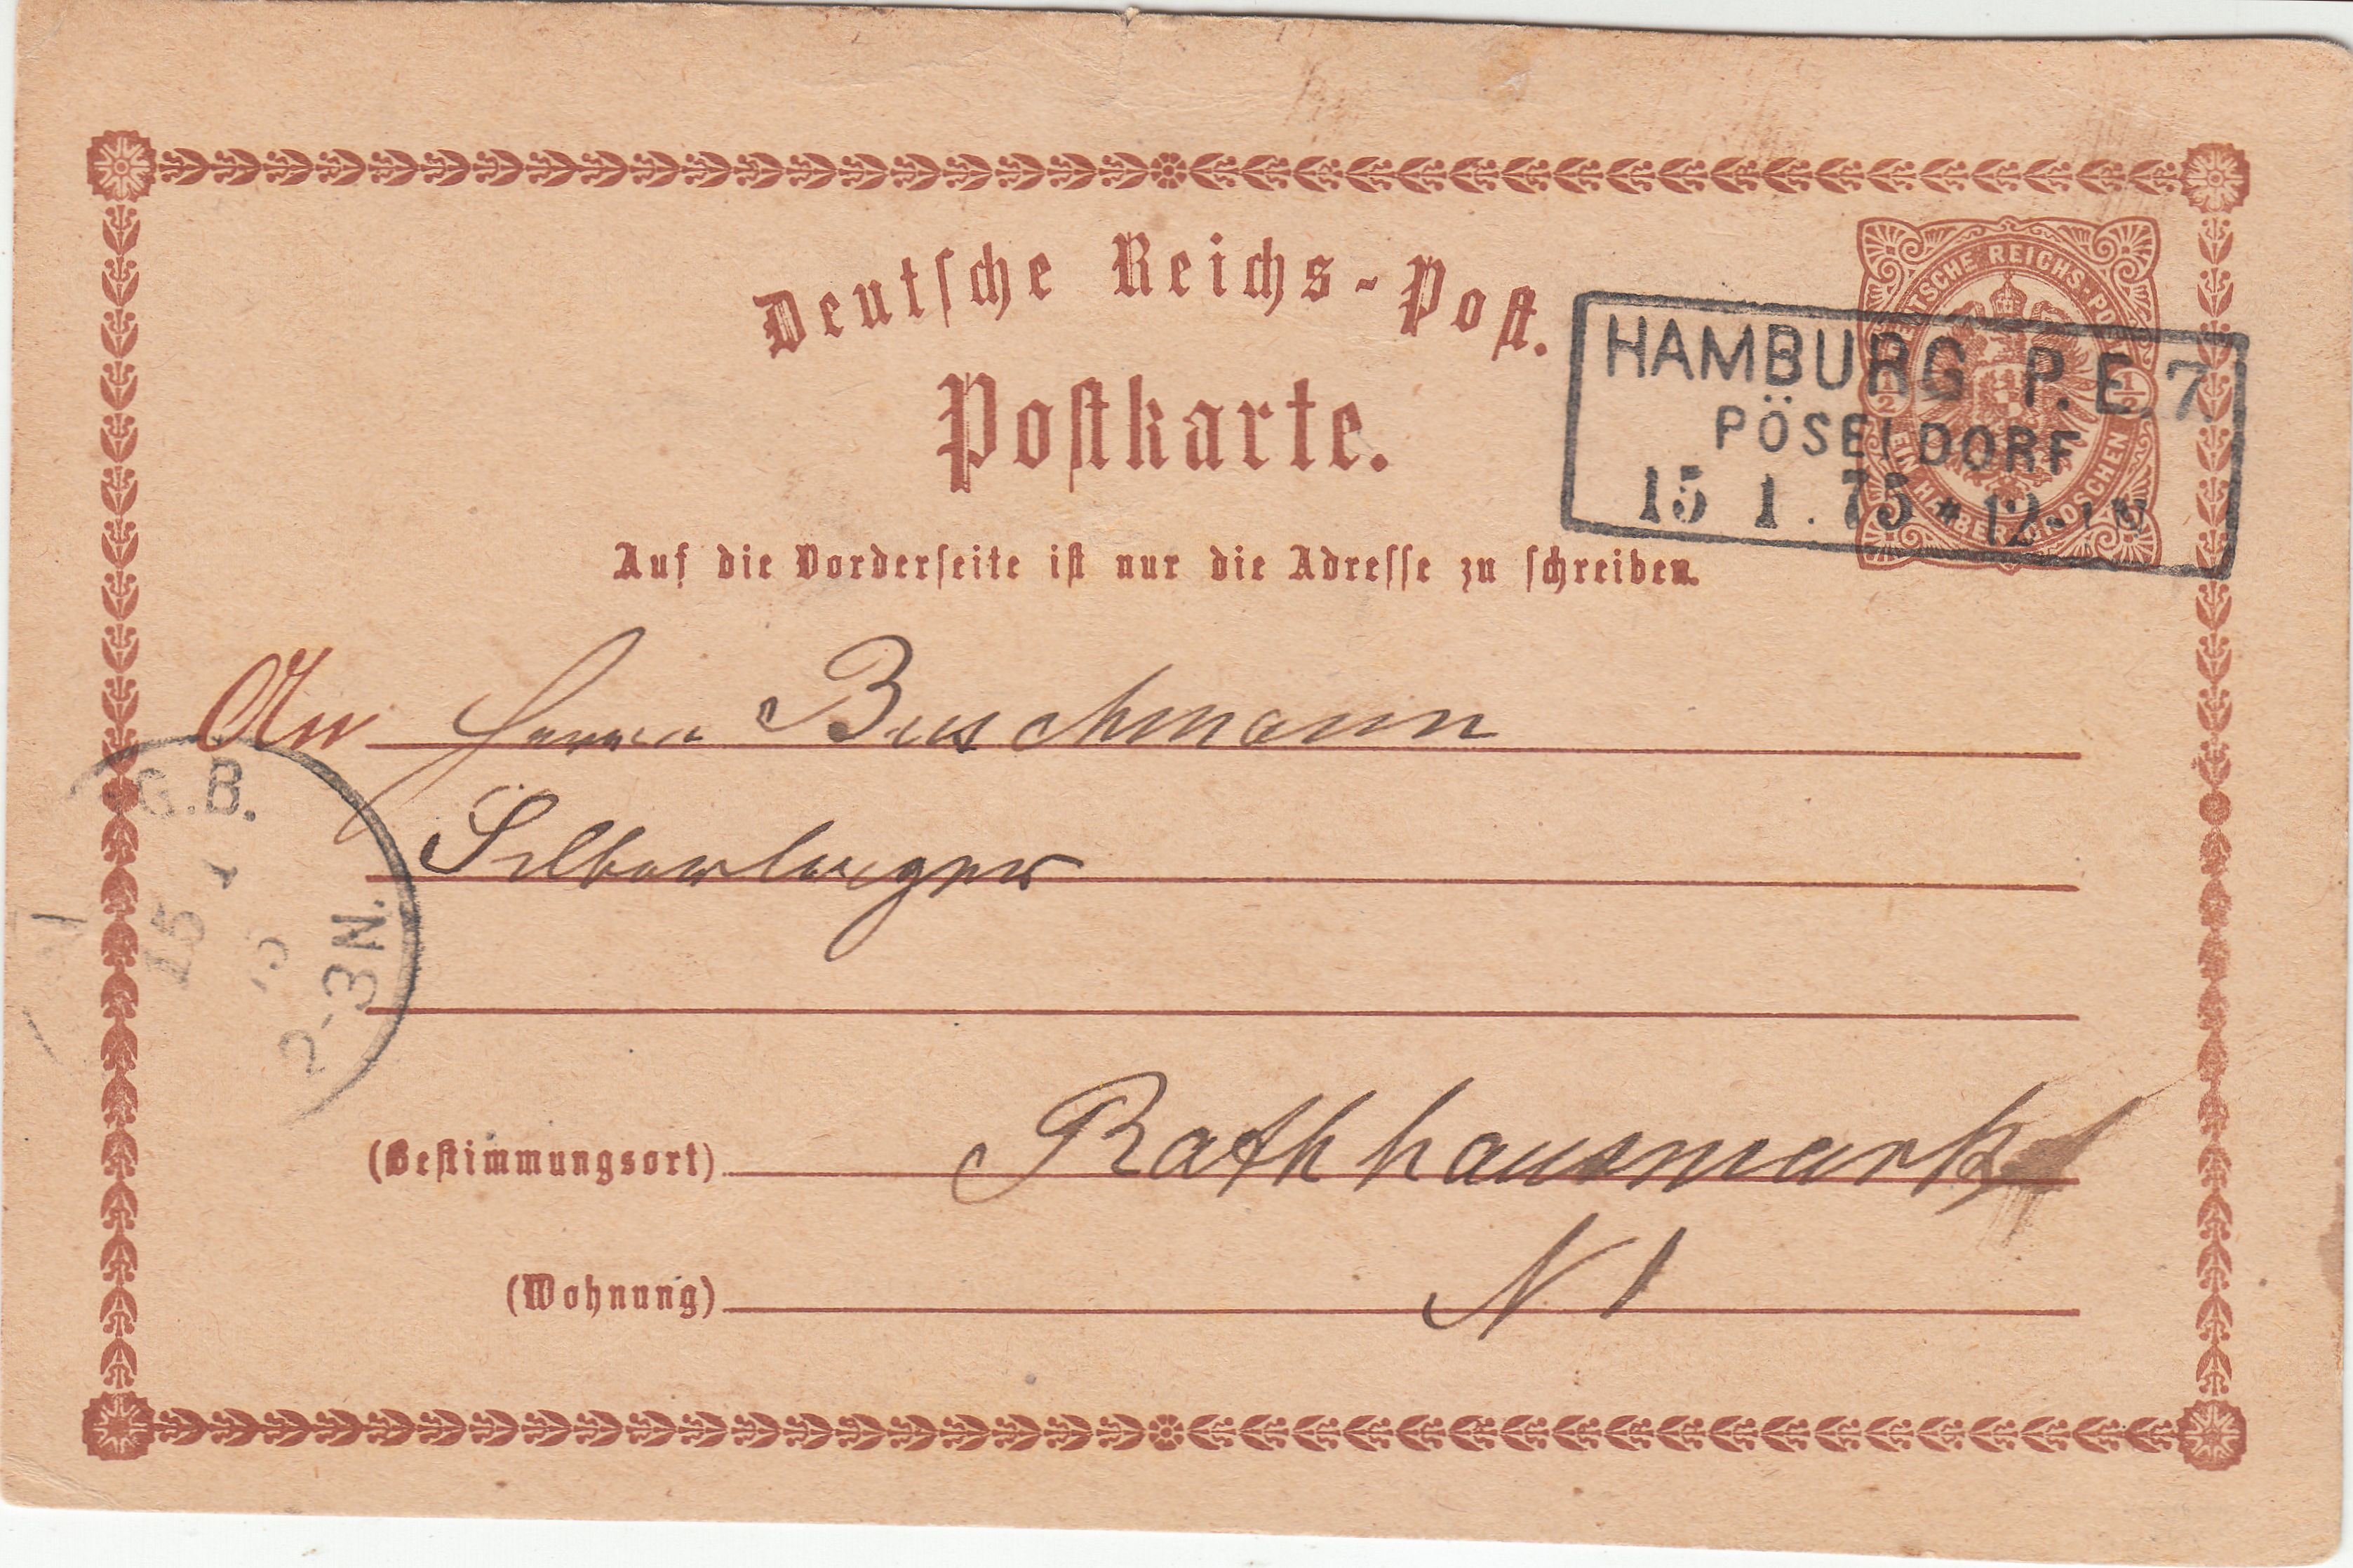 Deutsche Reichs-Post.
Postkarte.
DEUTSCHE REICHS-POST
1/2 1/2
EIN HALBER GROSCHEN
HAMBURG P.E.7.
PÖSELDORF
15 1. 75 * 12-1N
Auf die Vorderseite ist nur die Adresse zu schreiben.
An Herrn Buschmann
Silberlager
G.B.
15 1
2-3N.
(Bestimmungsort) Rathhausmarkt
(Wohnung) N 1